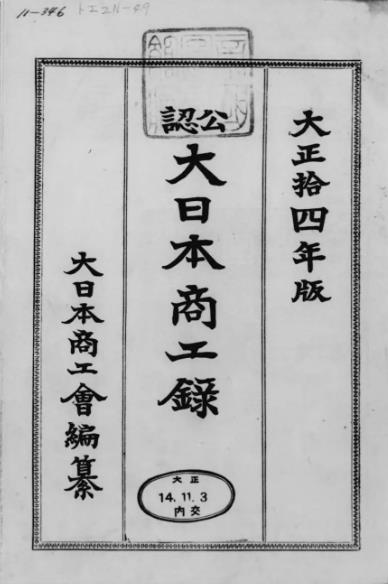 11-346
大正拾四年版
公認
大日本商工録
大日本商工會編纂
大正
14.11.3
内交